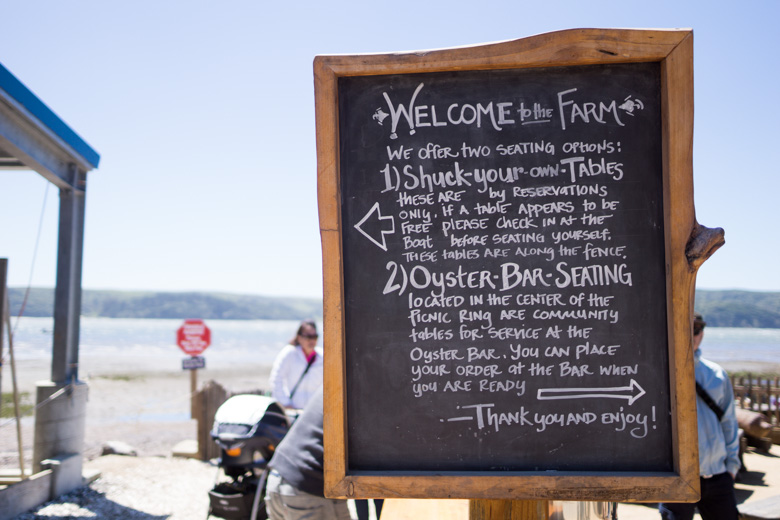 WELCOME to the FARM
WE OFFER TWO SEATING OPTIONS:
1) Shuck-your-own-Tables
these are by RESERVATIONS
only. If a table appears to be
free please check in at the
Boat before seating yourself.
These tables are along the fence.
2) OYSTER-BAR-SEATING
located in the center of the
Picnic Ring are community
tables for service at the
Oyster Bar. You can place
your order at the Bar when
you are ready
—Thank you and enjoy!